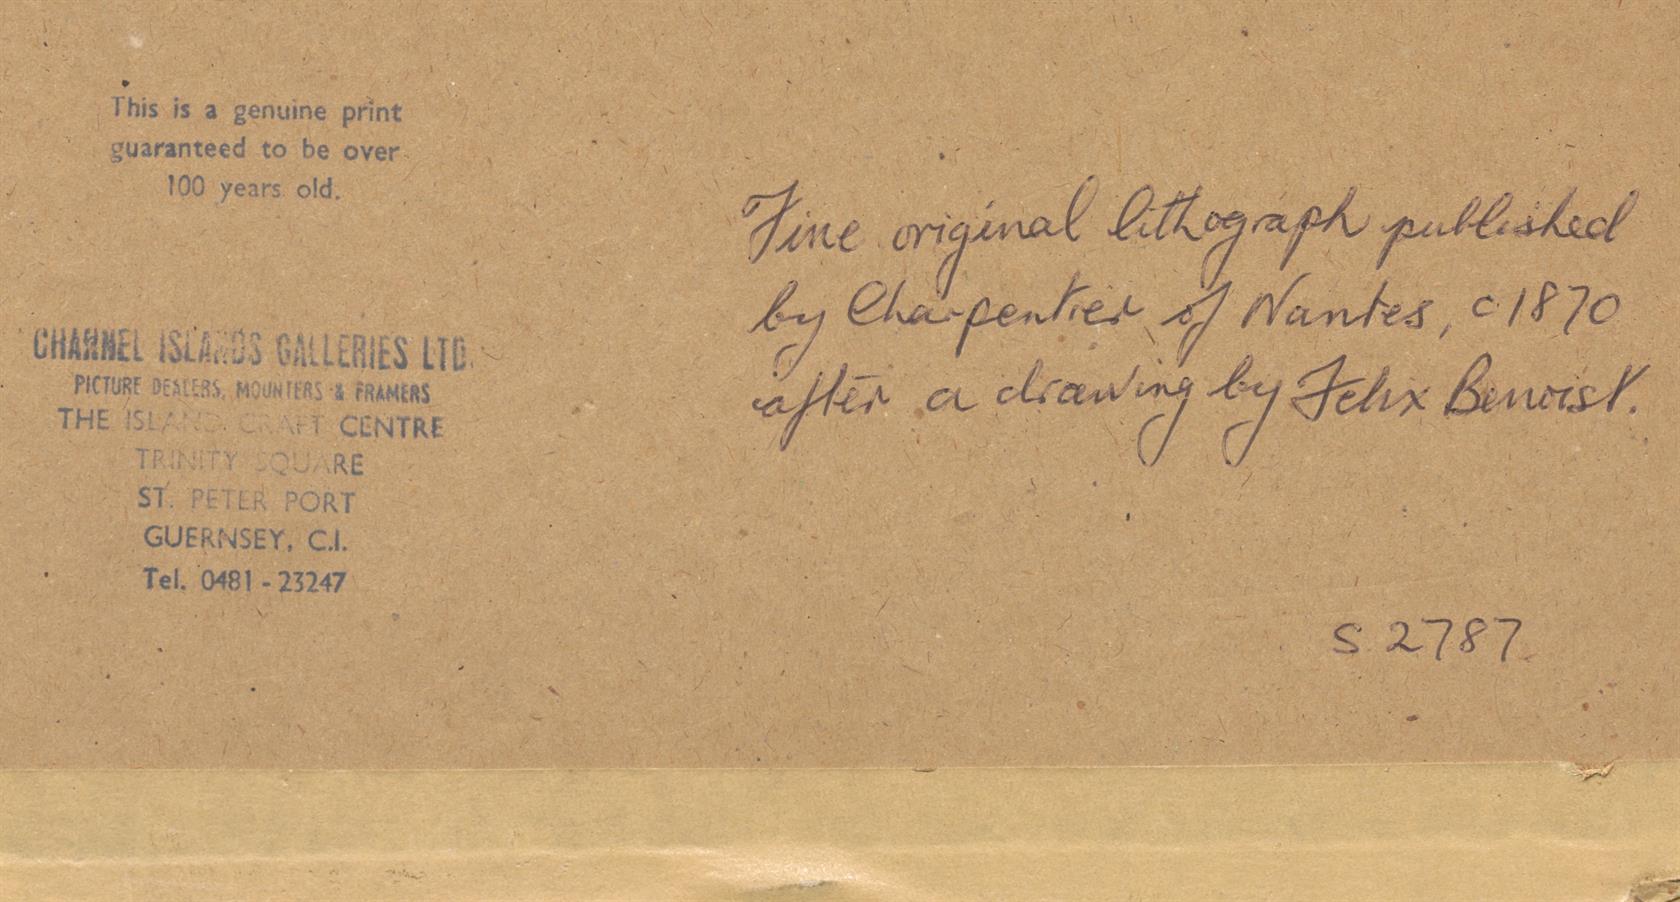 This is a genuine print
guaranteed to be over
100 years old.
CHANNEL ISLANDS GALLERIES LTD.
PICTURE DEALERS, MOUNTERS & FRAMERS
THE ISLAND CRAFT CENTRE
TRINITY SQUARE
ST. PETER PORT
GUERNSEY, C.I.
Tel. 0481 - 23247
Fine original lithograph published
by Charpentier of Nantes, c 1870
after a drawing by Felix Benoist.
S 2787